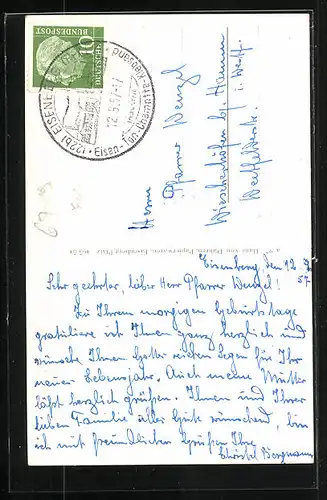 DEUTSCHE BUNDESPOST
10
(22b) EISENBERG
12.9.57-17
Eisen-, Ton-, Schamotte-
Herrn
Pfarrer Wenzel
Wiescherhöfen b. Hamm
i. Westf.
Eisenberg, den 12. 9. 57.
Sehr geehrter, lieber Herr Pfarrer Wenzel!
Zu Ihrem morgigen Geburtstage
gratuliere ich Ihnen ganz herzlich und
wünsche Ihnen Gottes reichen Segen für Ihr
neues Lebensjahr. Auch meine Mutter
läßt herzlich grüßen. Ihnen und Ihrer
lieben Familie alles Gute wünschend, bin
ich mit freundlichen Grüßen Ihre
Christel Bergmann